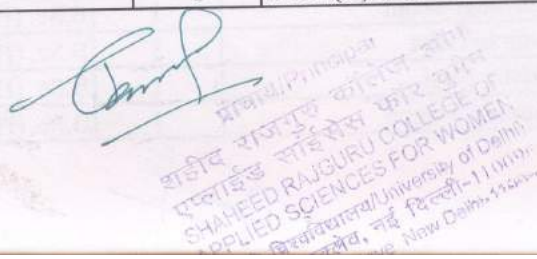 प्राचार्य/Principal
शहीद राजगुरु कॉलेज ऑफ
एप्लाईड साईसेस फॉर वुमेन
SHAHEED RAJGURU COLLEGE OF
APPLIED SCIENCES FOR WOMEN
विश्वविद्यालय/University of Delhi
नई दिल्ली-110
New Delhi